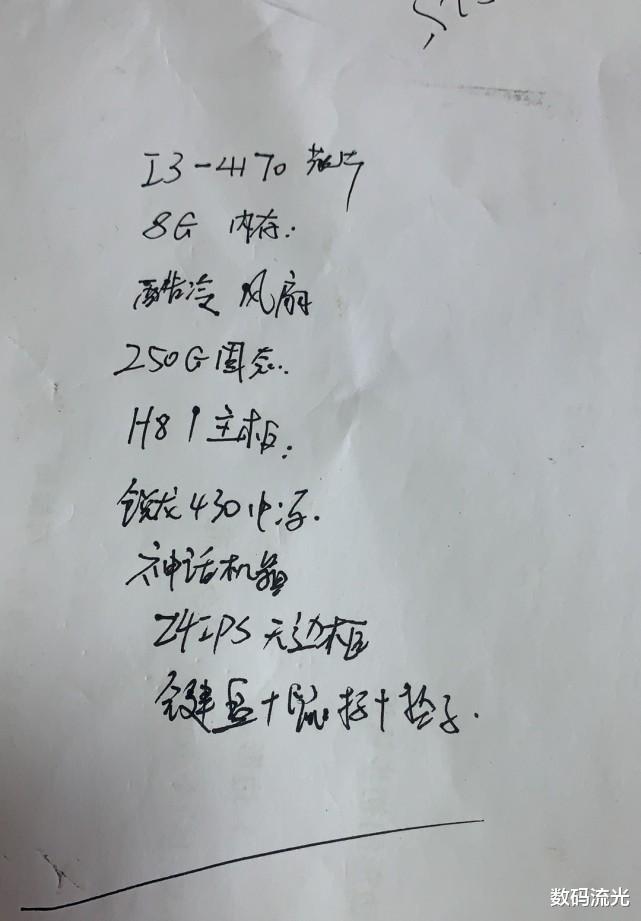 I3-4170 散片
8G 内存:
酷冷风扇
250G固态..
H81主板:
锐龙430电源.
神话机箱
24IPS 无边框
键盘+鼠标+
数码流光